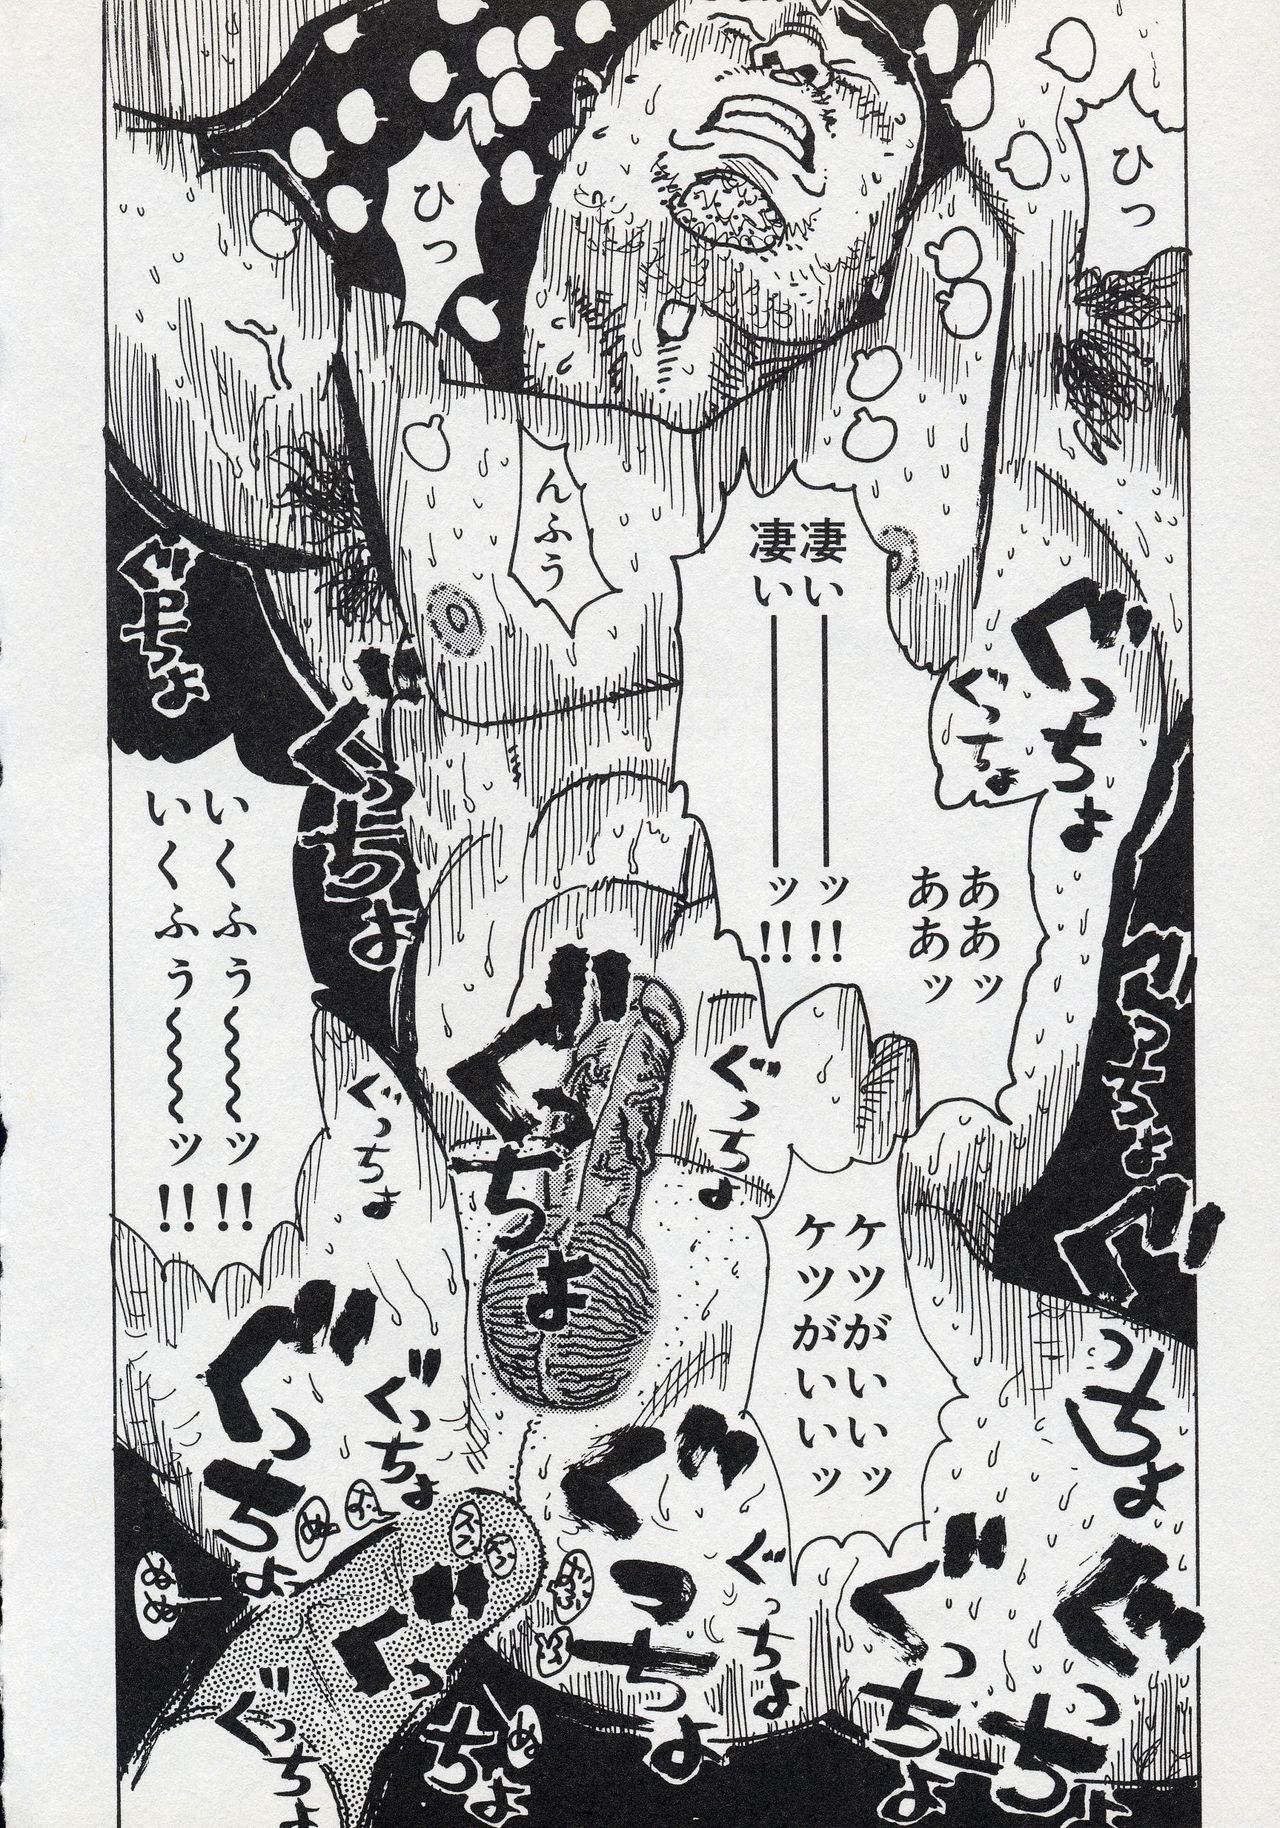 ひっ
ひっ
んふう
凄い―――ッ!!
凄い―――ッ!!
ぐっちょ
ぐっちょ
ああッ
ああッ
ああッ
ああッ
ぐっちょ
ぐっちょ
ぐっちょ
ぐっちょ
いくふぅ～～～ッ!!
いくふぅ～～～ッ!!
ぐっちょ
ぐっちょ
ケツがいいッ
ケツがいいッ
ぐっちょ
ぐっちょ
ぐっちょ
ぐっちょ
ぐっちょ
ぐっちょ
ぐっちょ
ぐっちょ
ぐっちょ
ぬぬ
ぬ